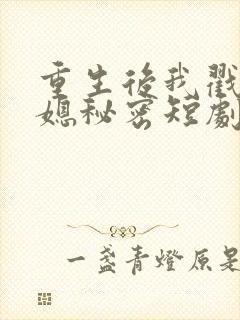 重生後我戳
媳秘密短劇
一盞青燈原是